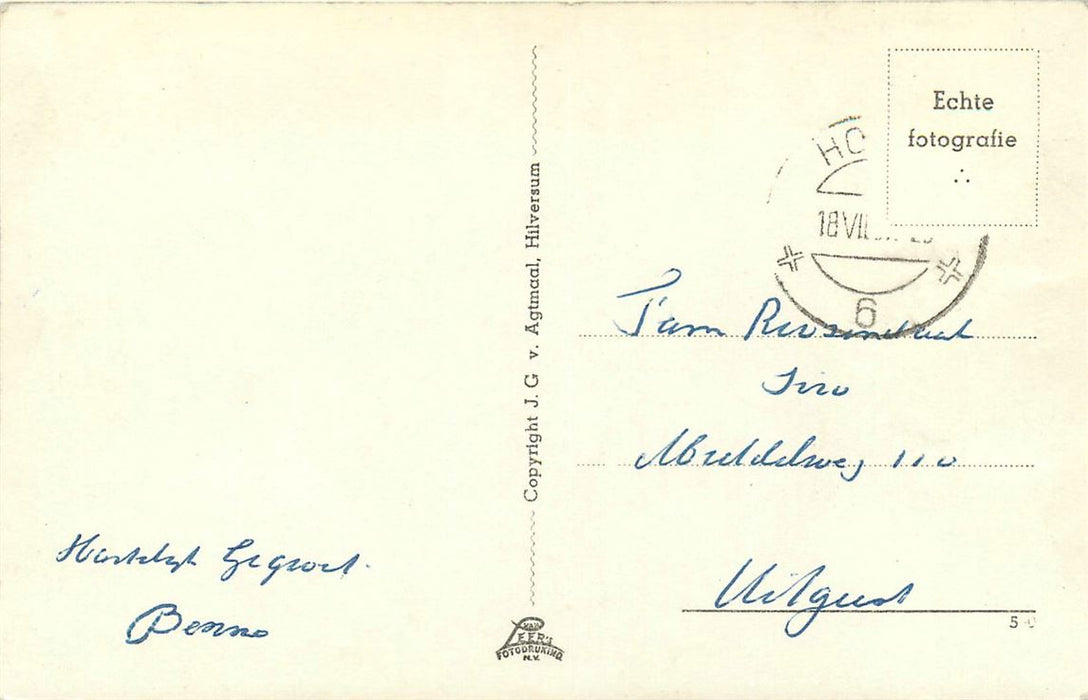 Hartelijk Gegroet.
Benno
Copyright J. G v. Agtmaal, Hilversum
VAN LEER'S
FOTODRUKIND.
N.V.
Echte
fotografie
HO
18 VII
6
Fam
Middelweg 110
Uitgeest
5